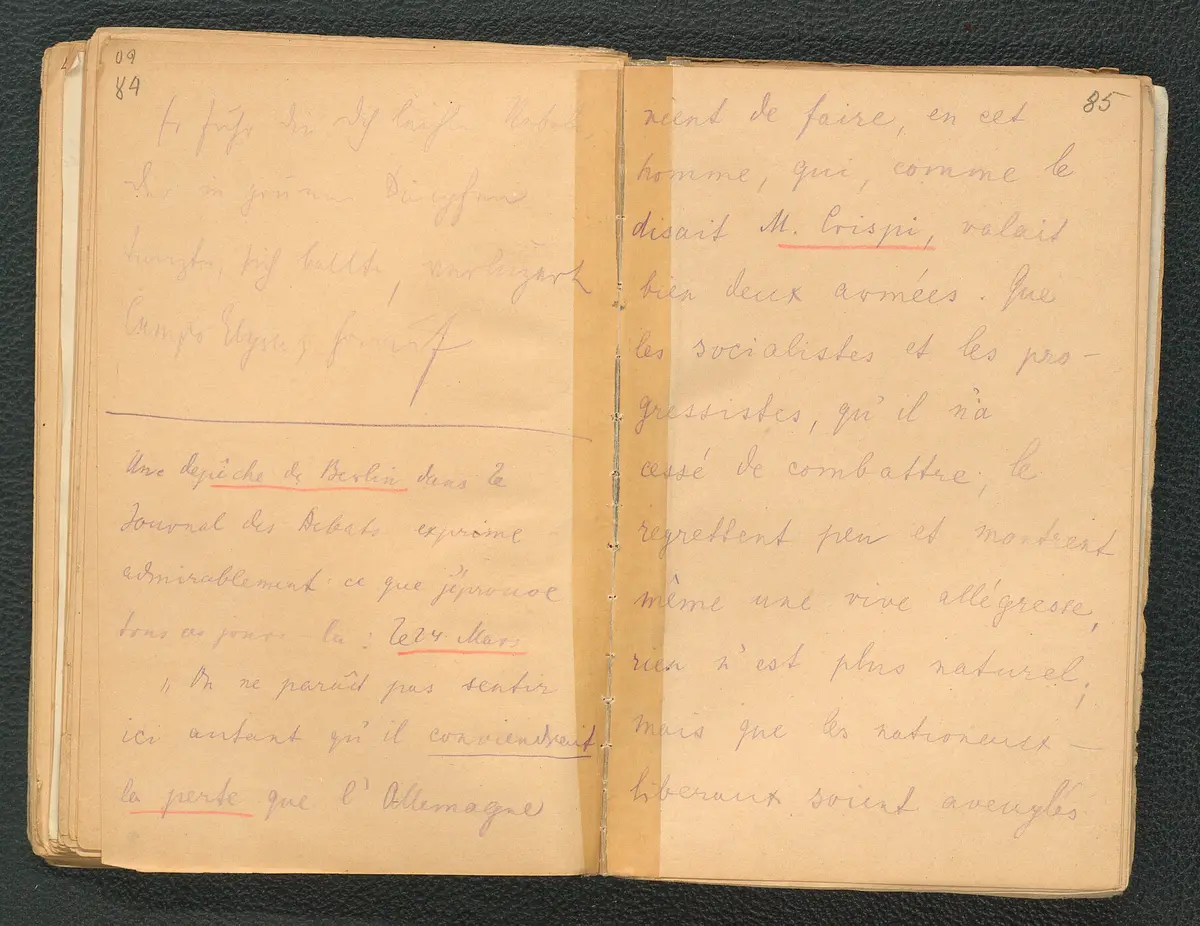 09
84
der in
tanzte, sich ballte,
Une depûche de Berlin dans le
Journal des Debats exprime
admirablement ce que j'éprouve
tous ces jours-la : le 24 Mars
„ On ne parûit pas sentir
ici autant qu'il conviendrait
la perte que l'Allemagne
85
vient de faire, en cet
homme, qui, comme le
disait M. Crispi, valait
bien deux armées. Que
les socialistes et les pro-
gressistes, qu'il n'a
cessé de combattre, le
regrettent peu et montrent
même une vive allégresse,
rien n'est plus naturel;
mais que les nationaux-
liberaux soient aveuglés